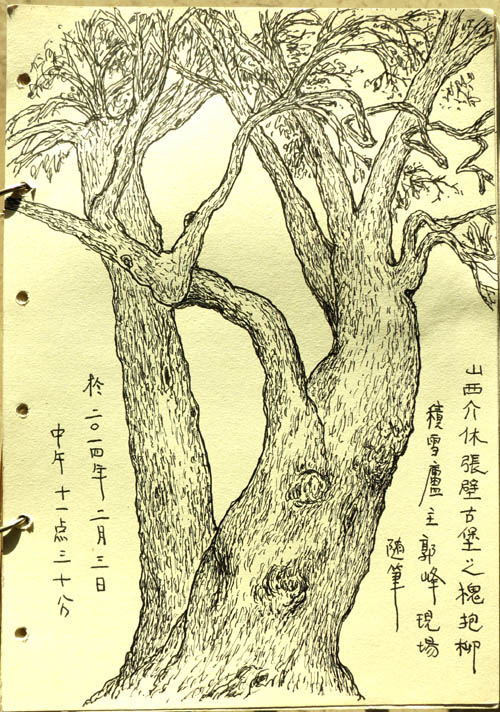 山西介休張壁古堡之槐抱柳
積雪廬主郭峰現場
隨筆
於二〇一四年二月三日
中午十一点三十分